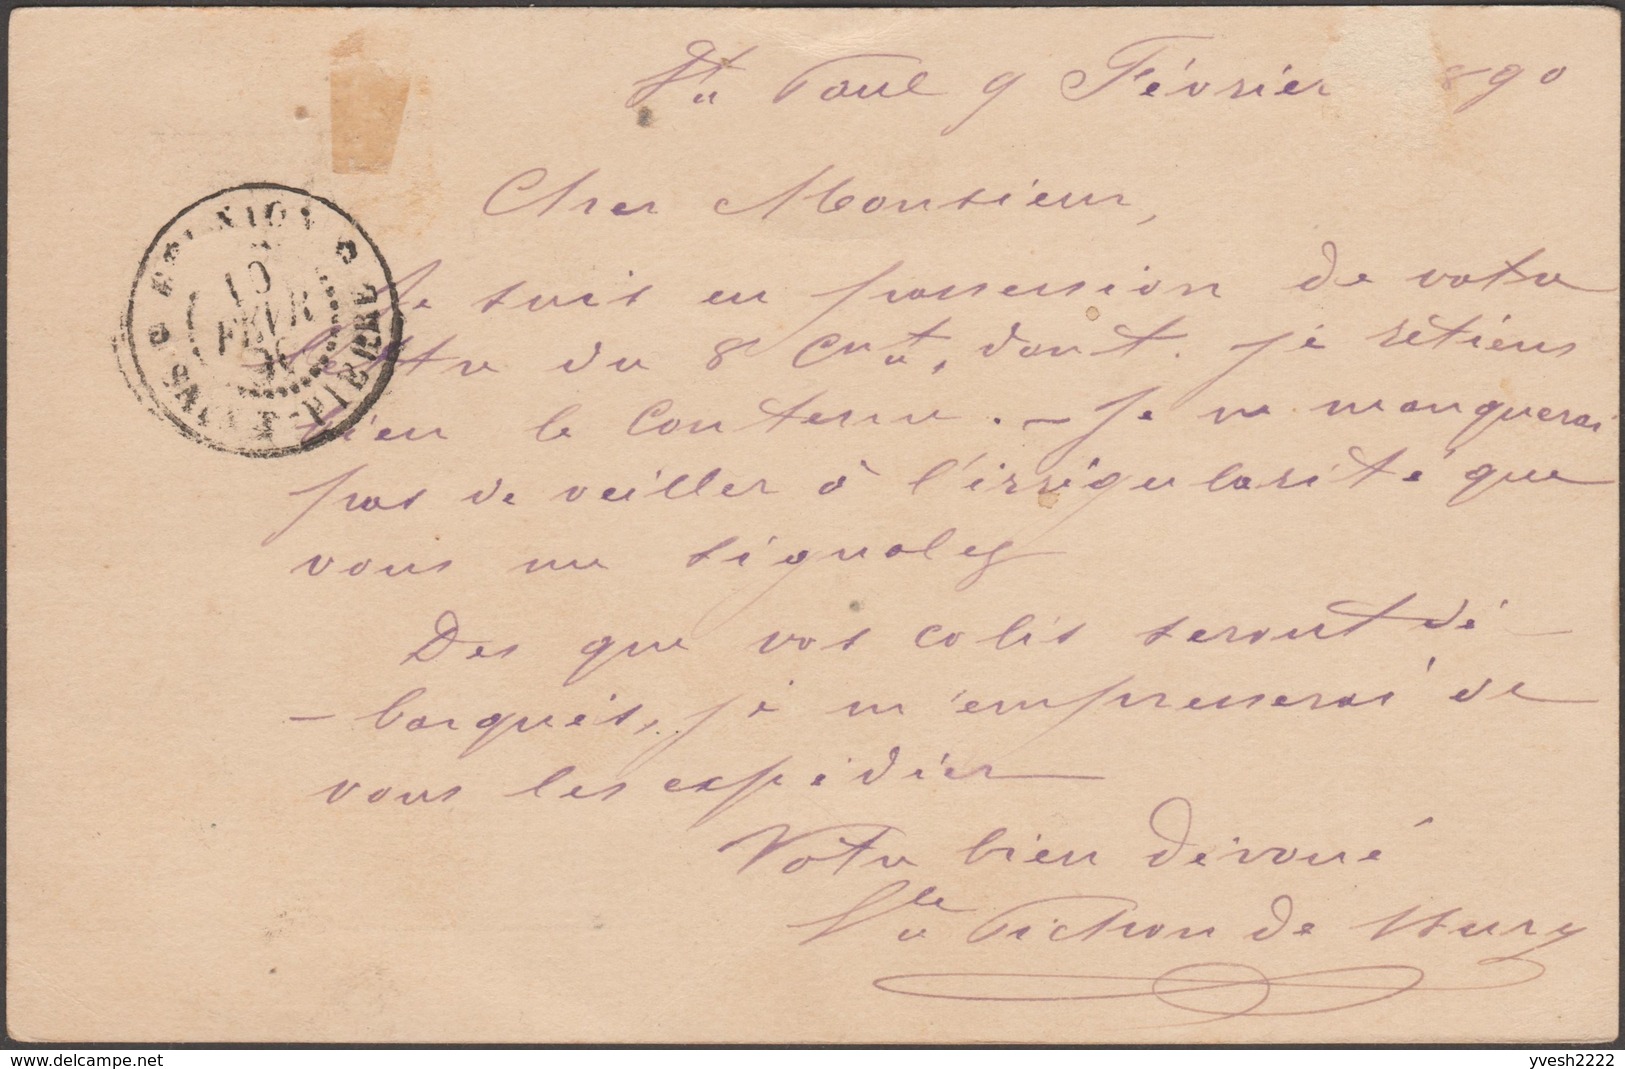 St Paul 9 Février 1890
Cher Monsieur,
Je suis en possession de votre
lettre du 8 Cnt, dont je retiens
bien le contenu. — Je ne manquerai
pas de veiller à l'irrégularité que
vous me signalez
Des que vos colis seront dé
- barqués, je m'empresserai de
vous les expédier
Votre bien dévoué
Vte Pichon de Bury
RÉUNION
10
FEVR
90
SAINT-PIERRE
www.delcampe.net
yvesh2222